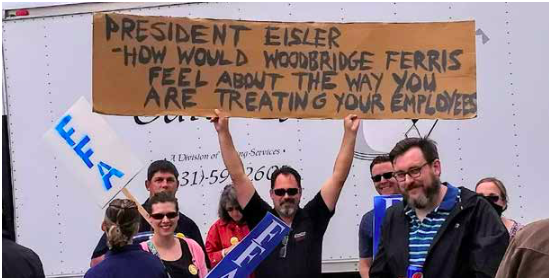 PRESIDENT EISLER
-HOW WOULD WOODBRIDGE FERRIS
FEEL ABOUT THE WAY YOU
ARE TREATING YOUR EMPLOYEES
FFA
A Division of
-Services •
FFA